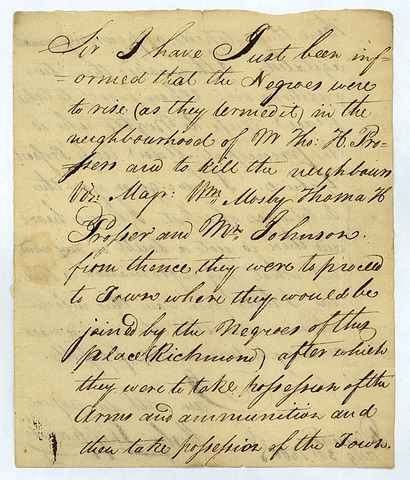 Sir I have Just been inf-
-ormed that the Negroes were
to rise (as they termed it) in the
neighbourhood of Mr Tho: H. Pro-
-ssers and to kill the neighbours
Viz: Majr: Wm Mosby Thomas H
Prosser and Mr Johnson
from thence they were to proceed
to Town where they would be
joined by the Negroes of this
place (Richmond) after which
they were to take possession of the
Arms and ammunition and
then take possession of the Town.